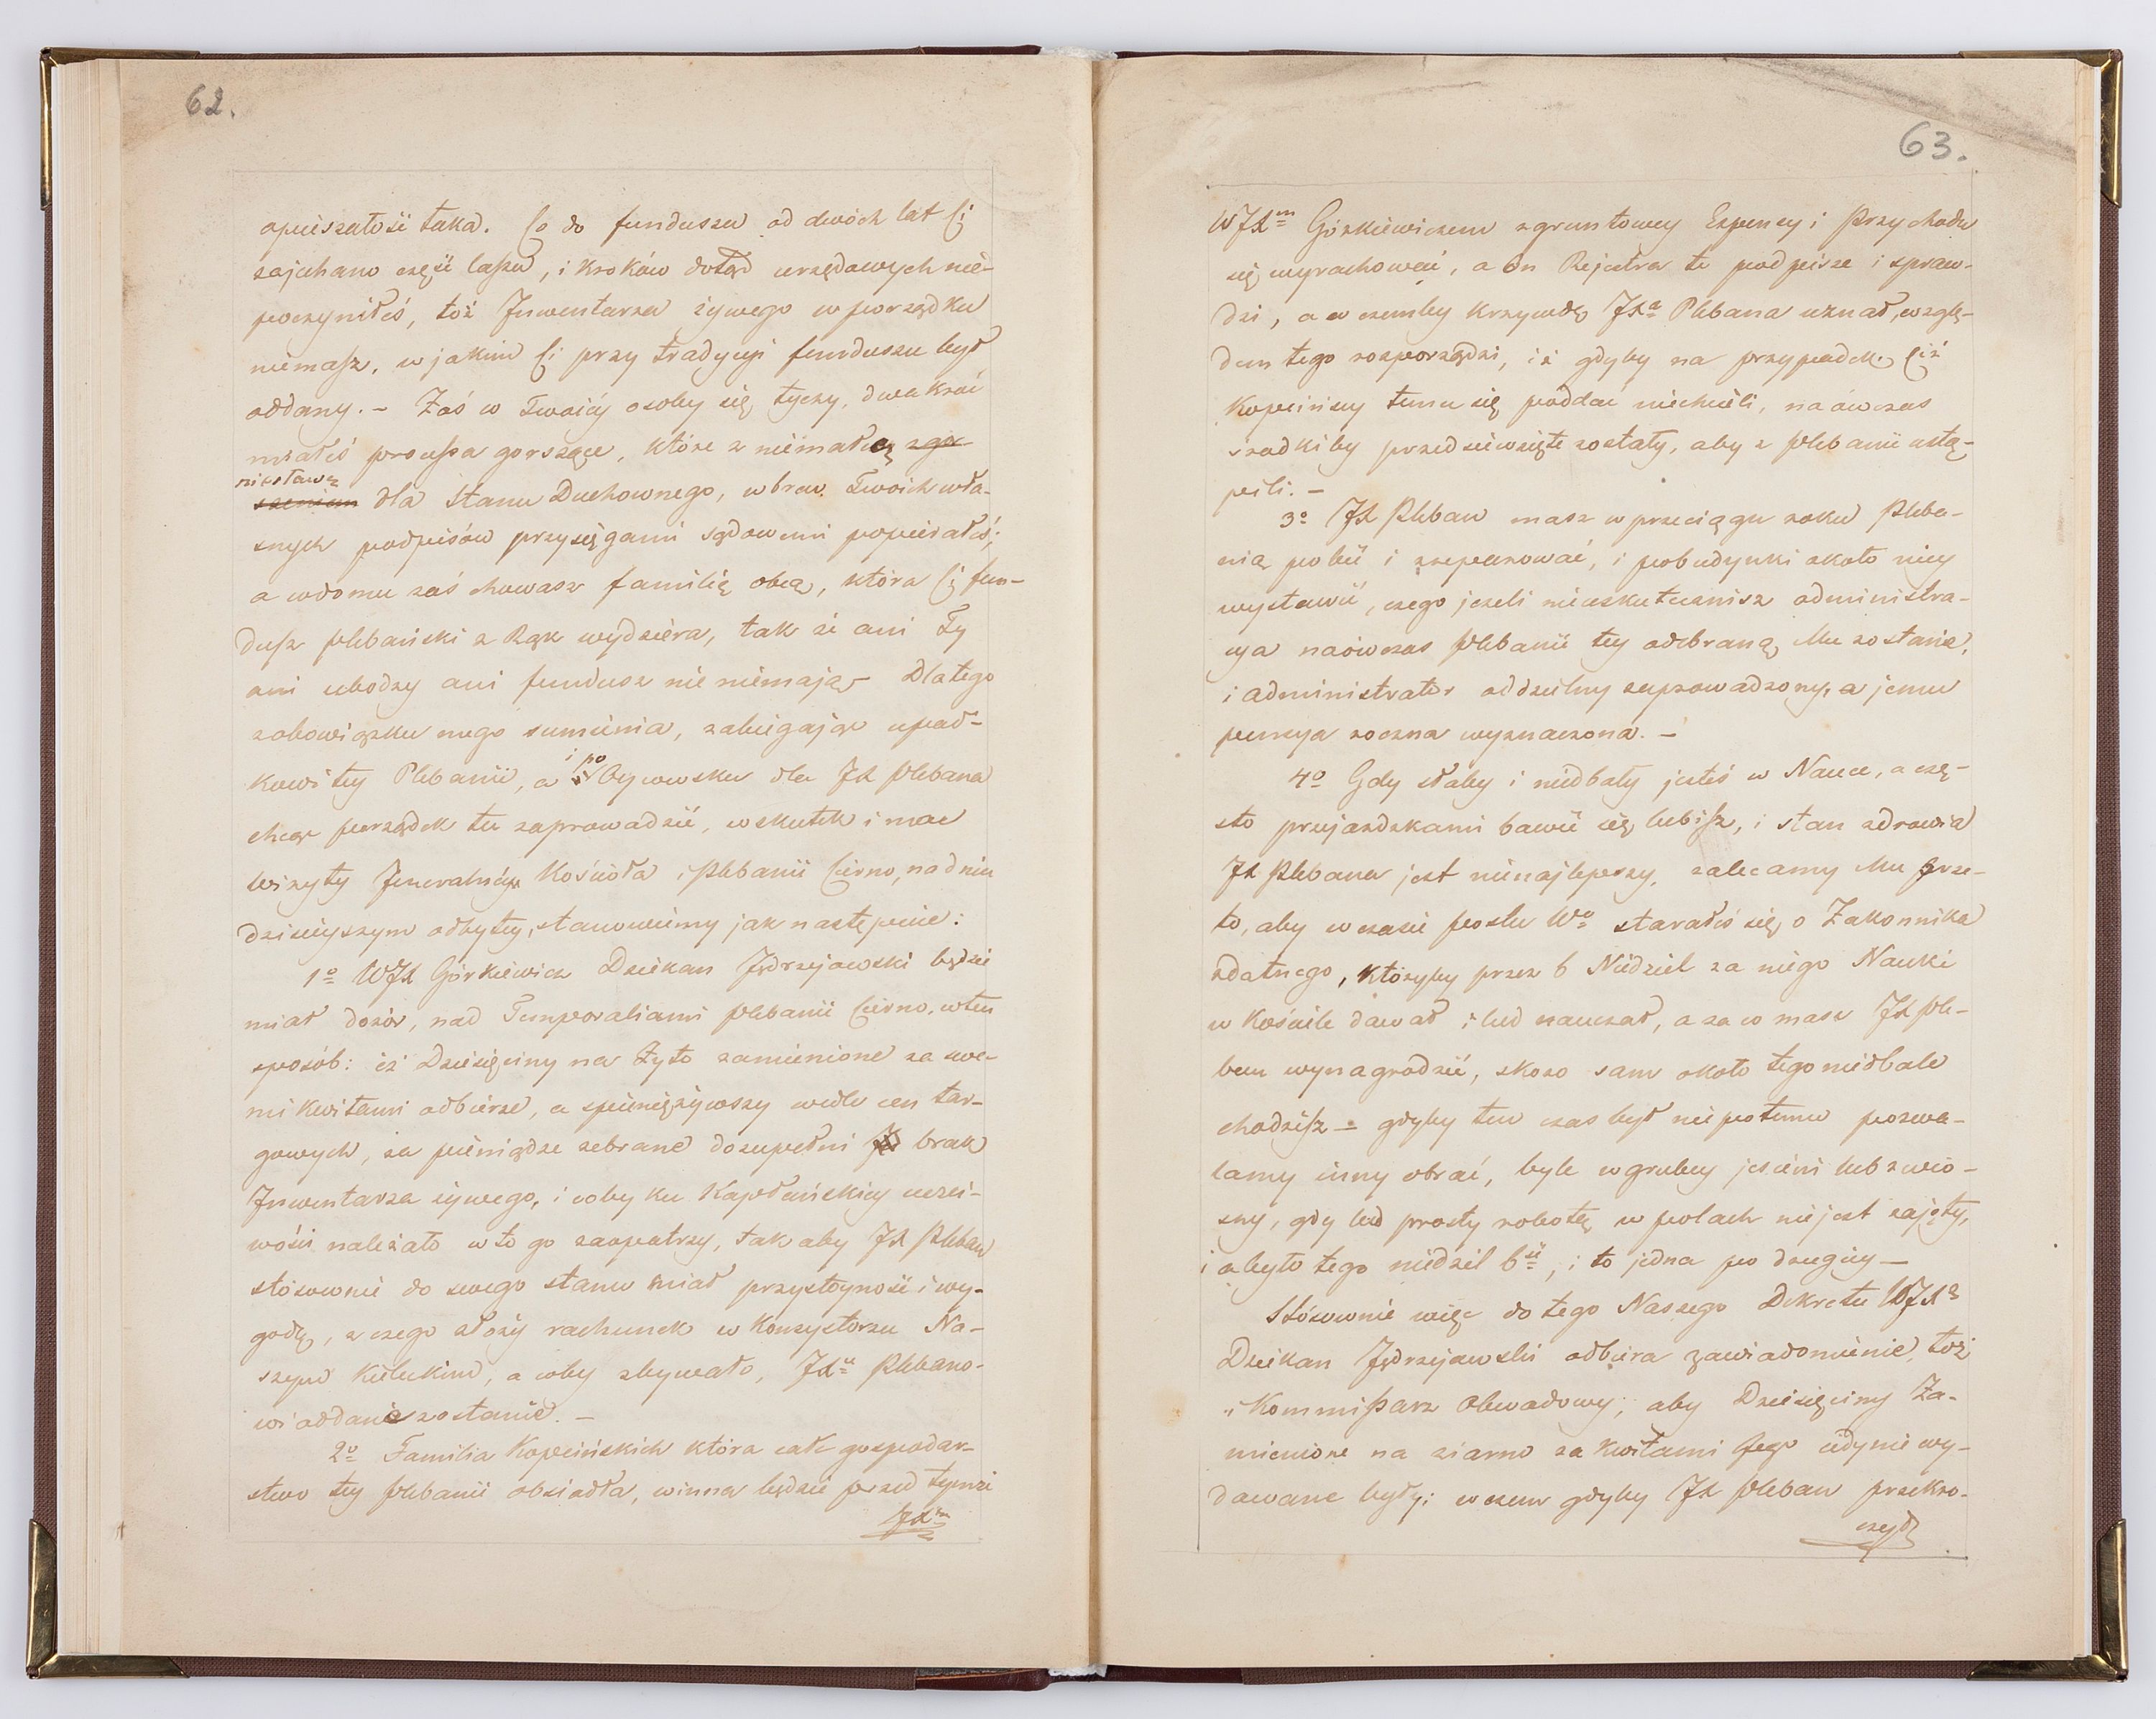 62.
opieszałość taka. Co do funduszu od dwóch lat Ci
zajechano część laszu, i kroków dotąd urzędowych nie-
poczyniłeś, toż Inwentarza żywego w porządku
niemasz, w jakim Ci przy tradycyi funduszu był
oddany. – Zaś co Twoiéy osoby się tyczy, dwa kroć
miałeś processa gorszące, które z niemałą zgor-
niesławą
szeniem dla Stanu Duchownego, wbrew Twoich wła-
snych podpisów przysięgami sądowemi popierałeś;
a w domu zaś chowasz familią obcą, która Ci fun-
dusz plebański z Rąk wydziera, tak że ani Ty
ani ubodzy ani fundusz nic niemają – Dlatego
z obowiązku mego sumienia, zabiegając upad-
kowi tey Plebanii, a i po Oycowsku dla JX Plebana
chcąc porządek tu zaprowadzić, w skutek i moc
Wizyty Jeneralnéy Kościoła i Plebanii Cierno, na dniu
dzisieyszym odbytey, stanowiemy jak następuie:
1o WJX Górkiewicz Dziekan Jędrzejowski będzie
miał dozór, nad Temporaliami plebanii Cierno, w ten
sposób: iż Dziesięciny na Żyto zamienione za swe-
mi kwitami odbierze, a spieniężywszy wedle cen tar-
gowych, za pieniądze zebrane dozupełni brak
Inwentarza żywego, i coby ku Kapłańskiey uczci-
wości należało w to go zaopatrzy, tak aby JX Pleban
stósownie do swego stanu miał przystoyność i wy-
godę, z czego złoży rachunek w Konsystorzu Na-
szym Kieleckim, a coby zbywało, JXu Plebano-
wi oddane zostanie. –
2o Familia Kopcińskich która całe gospodar-
stwo tey Plebanii obsiadła, winna będzie przed tymże
JXm
63.
WJXm Górkiewiczem z gruntowey Expensy i Przychodu
się wyrachować, a on Rejestra te podpisze i spraw-
dzi, a w czemby krzywdę JXa Plebana uznał, wzglę-
dem tego rozporządzi, iż gdyby na przypadek Ciż
Kopcińscy temu się poddać niechcieli, naówczas
środki by przedsięwzięte zostały, aby z Plebanii ustą-
pili. –
3o JX Pleban masz w przeciągu roku Pleba-
nią pobić i zreparować, i pobudynki około niey
wystawić, czego jeżeli nieuskutecznisz administra-
cya naówczas Plebanii tey odebraną Mu zostanie,
i administrator oddzielny zaprowadzony, a jemu
pensya roczna wyznaczona. –
4o Gdy słaby i niedbały jesteś w Nauce, a czę-
sto przejazdzkami bawić się lubisz, i stan zdrowia
JX Plebana jest nienajlepszy, zalecamy Mu prze-
to, aby w czasie postu Wo starałeś się o Zakonnika
zdatnego, któryby przez 6 Niedziel za niego Nauki
w Kościele dawał i lud nauczał, a za co masz JX Ple-
ban wynagrodzić, skoro sam około tego niedbale
chodzisz – gdyby ten czas był niepotemu pozwa-
lamy inny obrać, byle w grubey jesieni lub z wio-
sny, gdy lud prosty robotą w polach niejest zajęty,
i aby to tego niedziel 6ść, i to jedna po drugiey –
Stósownie więc do tego Naszego Dekretu WJX
Dziekan Jędrzejowski odbiera zawiadomienie, toż
i Kommissarz Obwodowy, aby Dziesięciny Za-
mienione na ziarno za kwitami Jego iedynie wy-
dawane były; w czem gdyby JX Pleban przekro-
czył